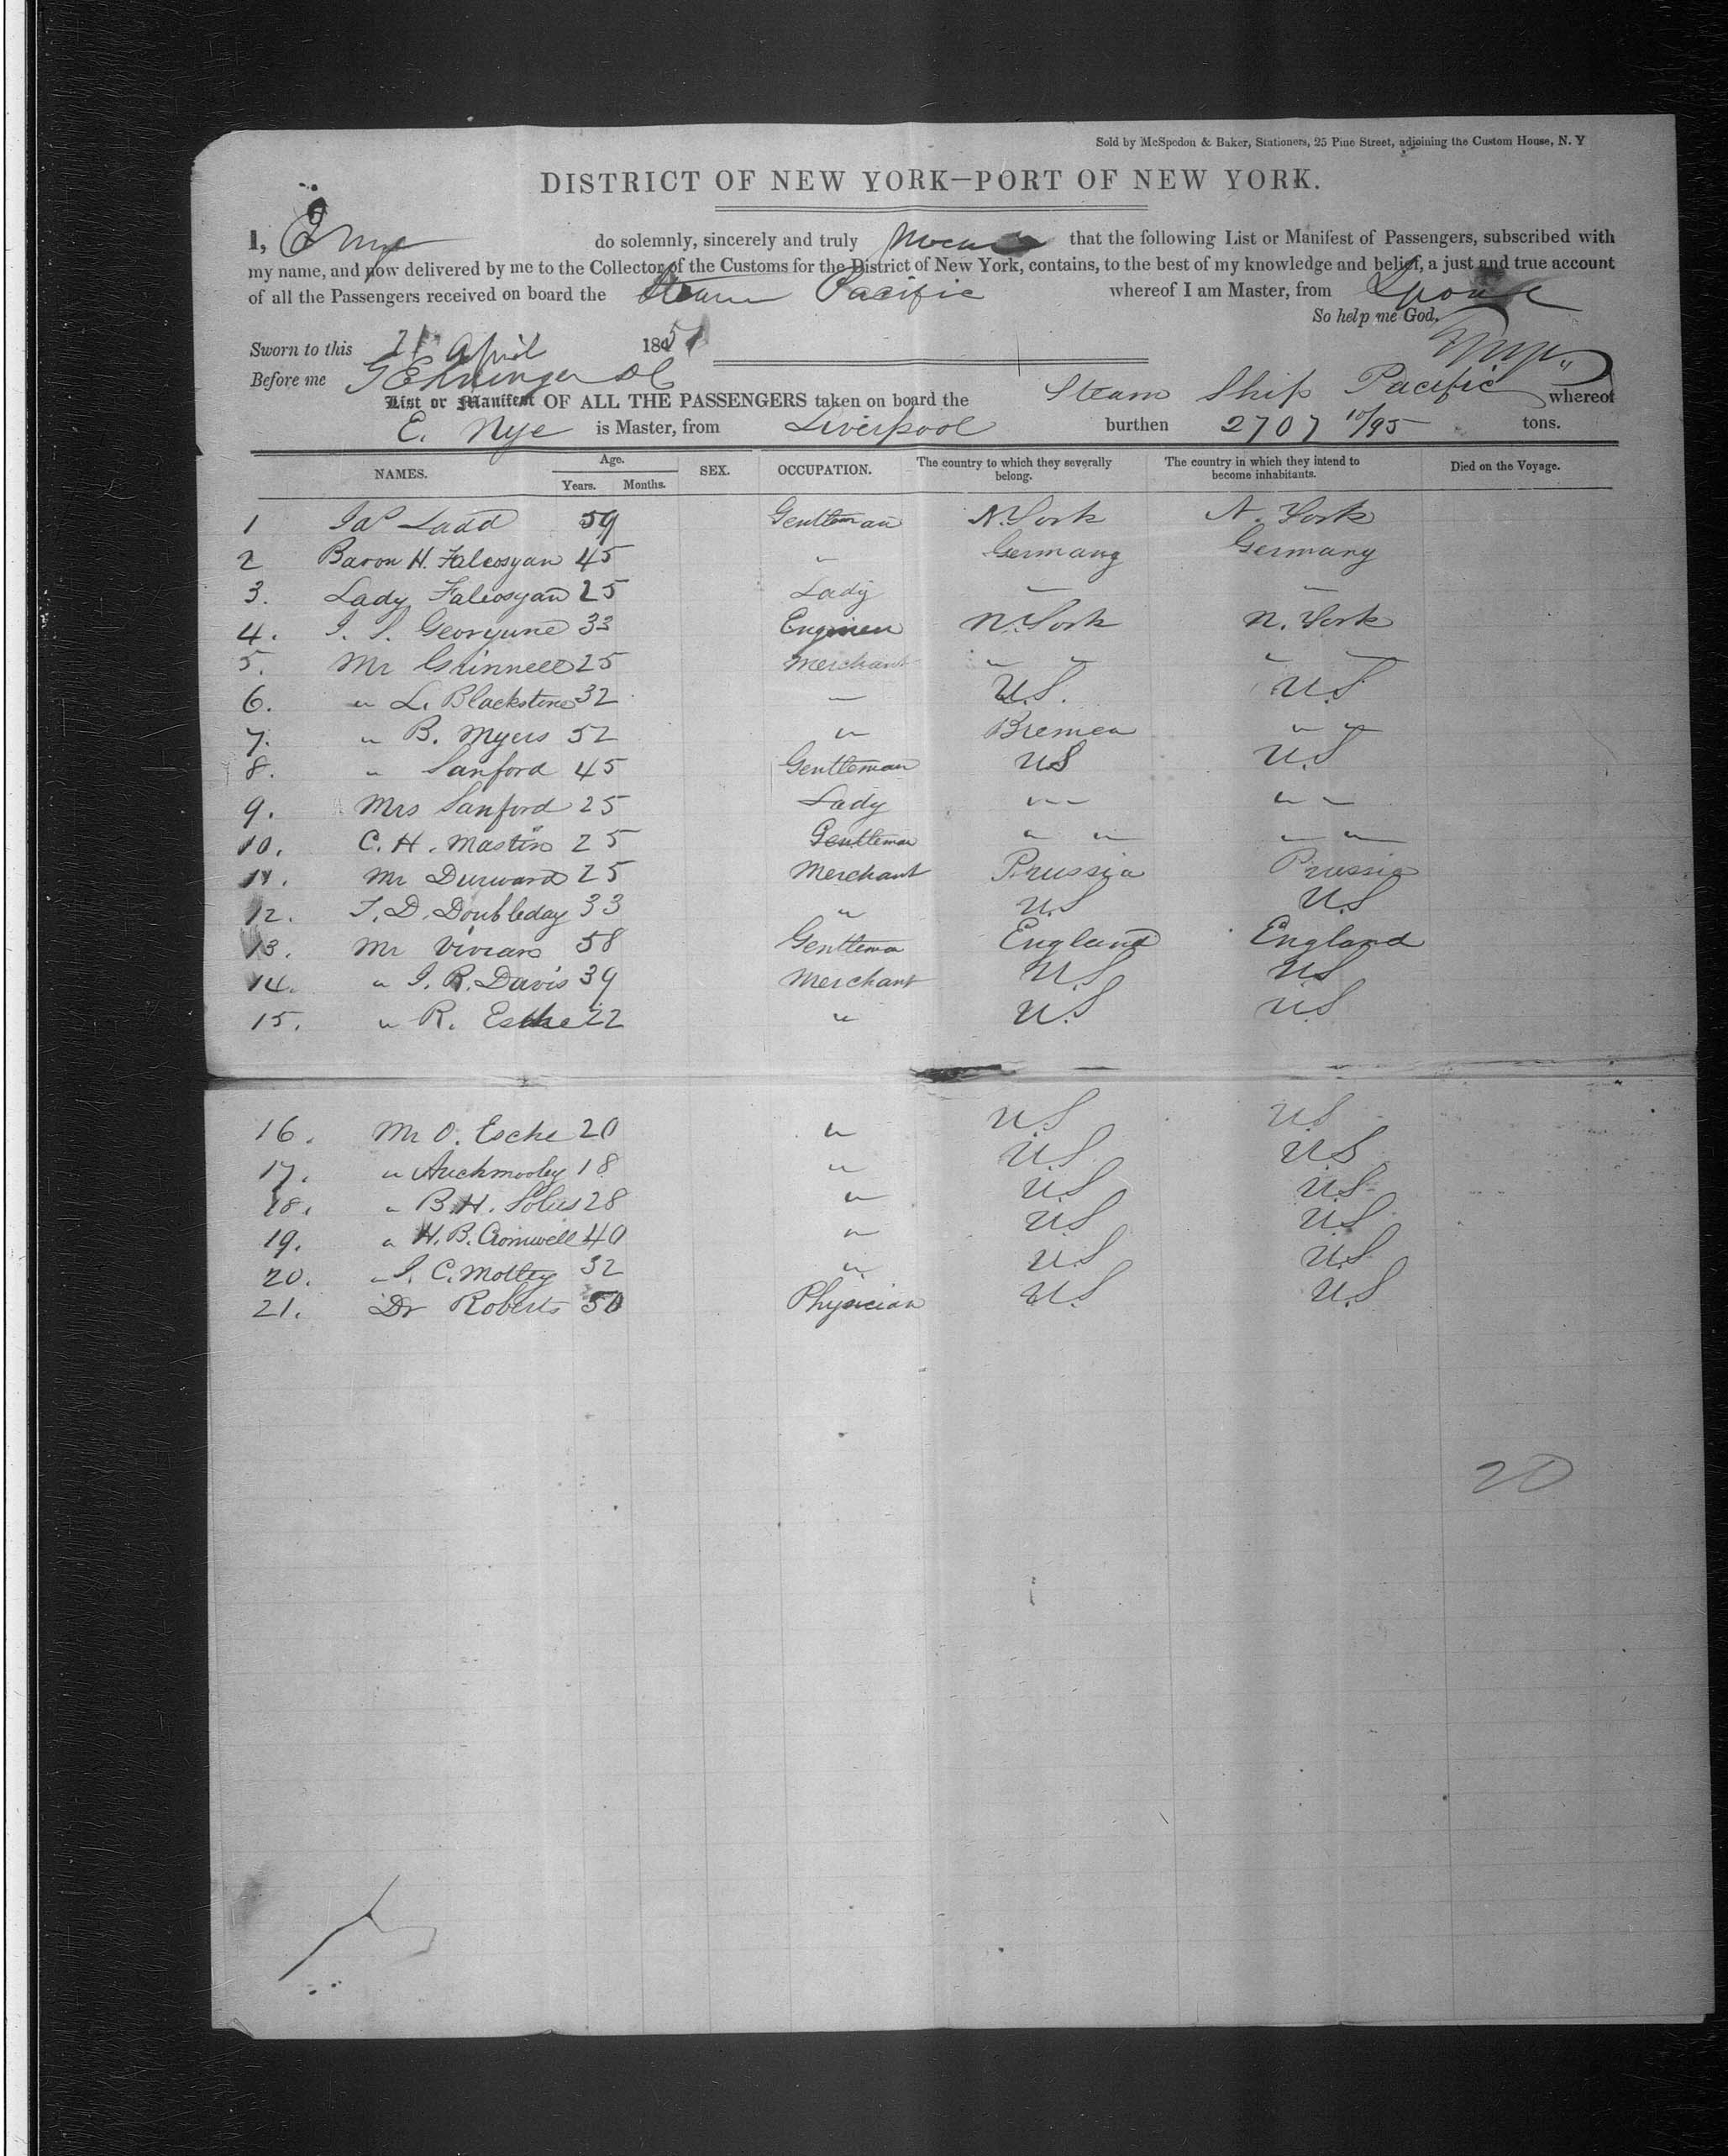 Sold by McSpedon & Baker, Stationers, 25 Pine Street, adjoining the Custom House, N. Y
DISTRICT OF NEW YORK—PORT OF NEW YORK.
I, E Nye do solemnly, sincerely and truly that the following List or Manifest of Passengers, subscribed with
my name, and now delivered by me to the Collector of the Customs for the District of New York, contains, to the best of my knowledge and belief, a just and true account
of all the Passengers received on board the Steamer Pacific whereof I am Master, from Lpool
So help me God.
Sworn to this 21 April 1851
Before me
List or Manifest OF ALL THE PASSENGERS taken on board the Steam Ship Pacific whereof
E. Nye is Master, from Liverpool burthen 2707 10/95 tons.
NAMES. Age. Years. Months. SEX. OCCUPATION. The country to which they severally belong. The country in which they intend to become inhabitants. Died on the Voyage.
1 Jas Ladd 59 Gentleman N. York N. York
2 Baron H. Falcosyan 45 " Germany Germany
3. Lady Falcosyan 25 Lady " "
4. J. S. Georgune 33 Engineer N. York N. York
5. Mr Grinnell 25 Merchant " " " "
6. " L. Blackstone 32 " U.S. U.S
7. " B. Myers 52 " Bremen " "
8. " Sanford 45 Gentleman US U.S
9. Mrs Sanford 25 Lady " " " "
10. C. H. Mastin 25 Gentleman " " " "
11. Mr Durward 25 Merchant Prussia Prussia
12. T. D. Doubleday 33 " U.S U.S
13. Mr Vivian 58 Gentlema England England
14. " J. R. Davis 39 Merchant U.S U.S
15. " R. Esche 22 " U.S U.S
16. Mr O. Esche 20 " U.S U.S
17. " Auchmooley 18 " U.S U.S
18. " B. H. Solus 28 " U.S U.S
19. " H. B. Cromwell 40 " U.S U.S
20. " J. C. Motley 32 " U.S U.S
21. Dr Roberts 50 Physician U.S U.S
20